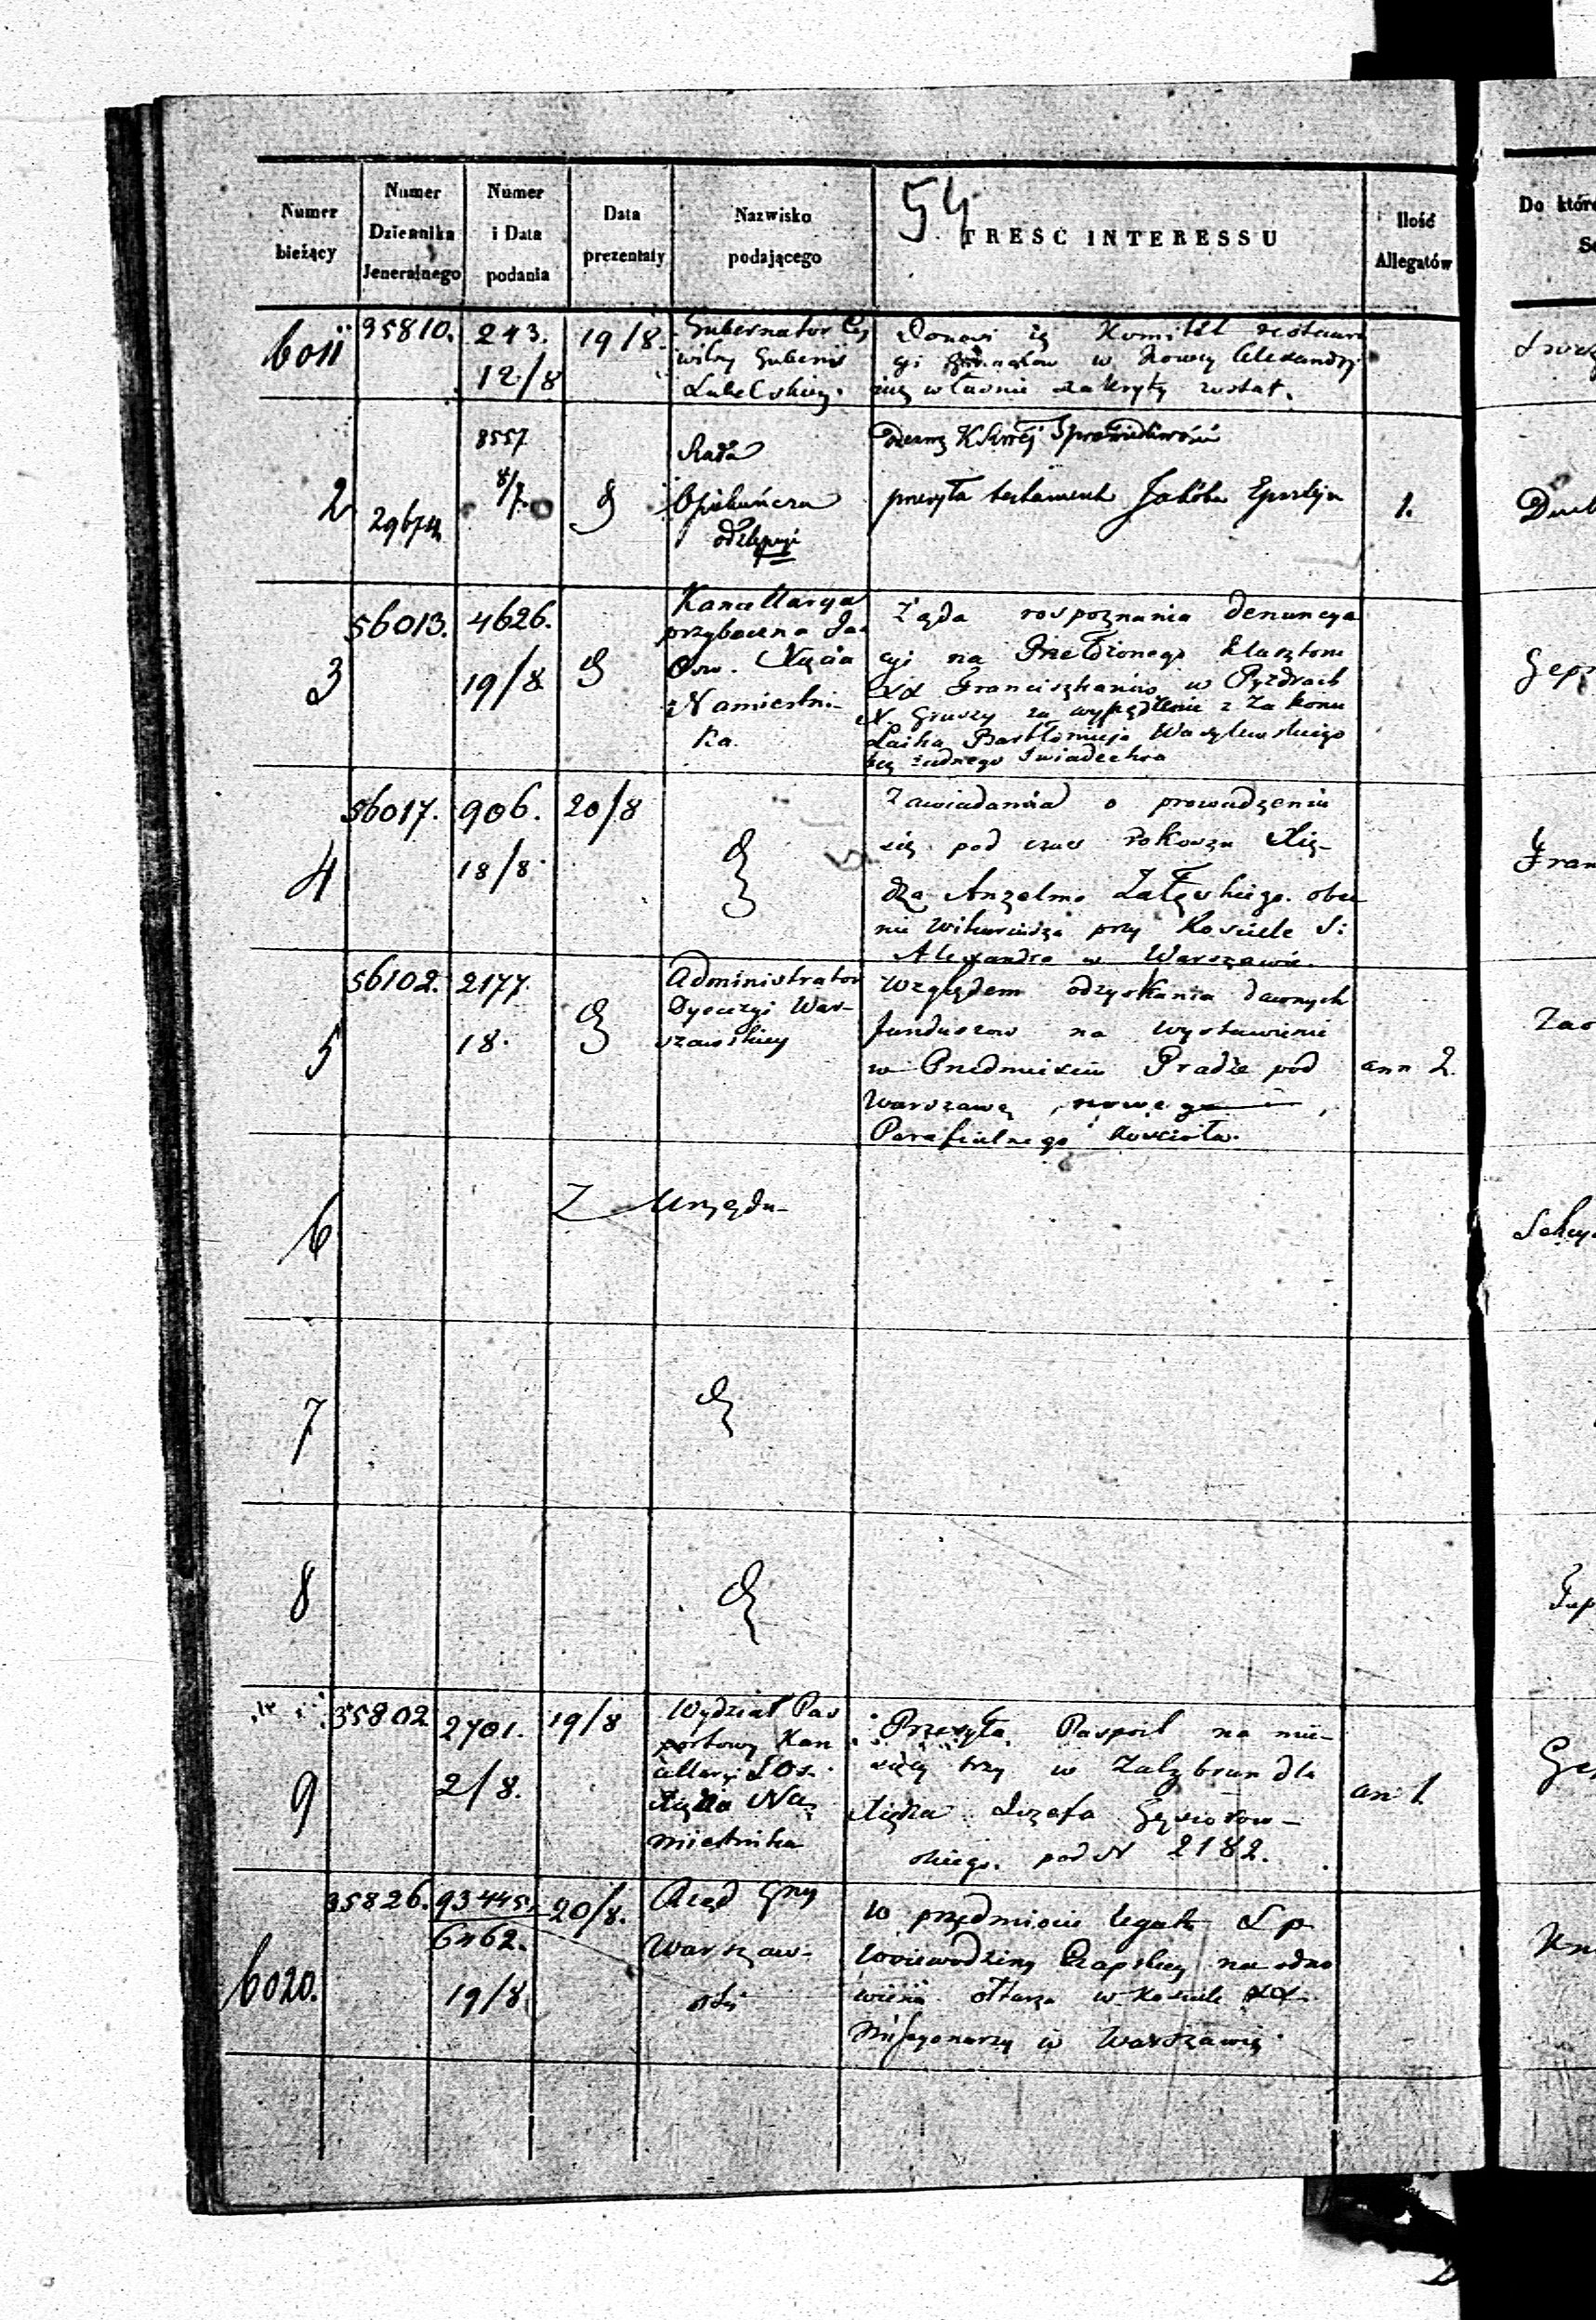 54
Numer bieżący
Numer Dziennika Jeneralnego
Numer i Data podania
Data prezentaty
Nazwisko podającego
TRESC INTERESSU
Ilość Allegatów
6011
35810.
243.
12/8
19/8.
Gubernator Cy
wilny Gubernii
Lubelskiey.
Donosi iż Komitet
w Nowey Alexandry
właśnie zakryty został.
2
29674
8557
8/7.
Rada
Opiekuńcza
przesyła testament Jakóba Epsztejn
1.
3
56013.
4626.
19/8
Kancellarya
przyboczna Ja
Osw. Xięcia
Namiestni-
ka.
Żąda rospoznania denuncya
cyi na Przełożonego Klasztoru
XX Franciszkanów w Pyzdrach
X. Gruszy za wypędzenie z Zakonu
Laika Bartłomieja Wasylewskiego
bez żadnego świadectwa
4
56017.
906.
18/8.
20/8
Zawiadamia o prowadzeniu
się pod czas rokoszu Xię-
dza Anzelma Załęskiego obec
nie Wikariusza przy Kościele S:
Alexandra w Warszawie.
5
56102.
2177.
18.
Administrator
Dyecezyi War-
szawskiey
Względem odzyskania dawnych
funduszow na wystawienie
w Przedmieściu Pradze pod
Warszawą nowego
Parafialnego kościoła.
ann 2.
6
Z Urzędu
7
8
9
35802
2701.
2/8.
19/8
Wydział Pas
portowy Kan
cellaryi JOs.
Xięcia Na
miestnika
Przesyła Pasport na mie-
sięcy trzy w Zalzbrun dla
Xiędza Józefa Gąsiorow-
skiego. pod N 2182.
an 1.
6020.
35826.
93445.
6462.
19/8.
20/8.
Rząd Gny
Warszaw-
ski
W przedmiocie legatu Ś p
Woiewodziny Czapskiey na odno
wienie ołtarza w Kościele XX
Missyonarzy w Warszawie.
Do które